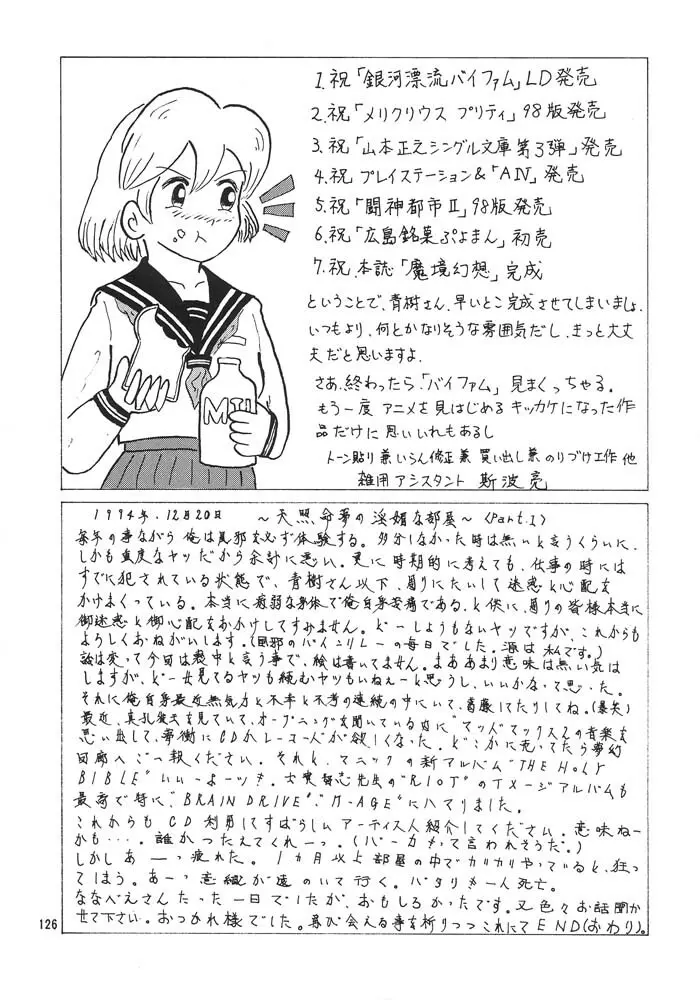 1.祝「銀河漂流バイファム」LD発売
2.祝「メリクリウス プリティ」98版発売
3.祝「山本正之シングル文庫第3弾」発売
4.祝 プレイステーション&「AIV」発売
5.祝「闘神都市II」98版発売
6.祝「広島銘菓ぷよまん」初売
7.祝.本誌「魔境幻想」完成
ということで、青樹さん、早いとこ完成させてしまいましょ.
いつもより、何とかなりそうな雰囲気だし、きっと大丈
夫だと思いますよ.
さあ、終わったら、「バイファム」見まくっちゃる。
もう一度 アニメを見はじめる キッカケになった作
品だけに 思いいれもあるし
トーン貼り 兼 いらん修正 兼 買い出し 兼 のりづけ工作 他
雑用アシスタント 斯波亮
MIL
1994年.12月20日 ~天照命夢の淫媚な部屋~ 〈Part.1〉
毎年の事ながら俺は風邪を必ず体験する。多分しなかった時は無いと言うくらいに、
しかも重度なヤツだから余計に悪い。更に時期的に考えても、仕事の時には
すでに犯されている状態で、青樹さん以下、周りにたいして迷惑と心配を
かけまくっている。本当に病弱な身体で俺自身苦痛であると供に、周りの皆様本当に
御迷惑と御心配をおかけしてすみません。どーしようもないヤツですが、これからも
よろしくおねがいします。(風邪のバイキンリレーの毎日でした。源は私です。)
話は変って今回は喪中と言う事で、絵は書いてません。まああまり意味は無い気は
しますが、どーせ見るヤツも読むヤツもいねぇーと思うし、いいかなって思った。
それに俺自身最近無気力と不幸と不考の連続の中にいて、葛藤してたりしてね。(爆笑)
最近、真孔雀王を見ていて、オープニングを聞いている内に"マッドマックス2の音楽を
思い出して、夢衝にCDかレコード欲しくなった。どこかに売ってたら夢幻
回廊へご一報ください。それと、マニックの新アルバム"THE HOLY
BIBLE"いいっよーッ!。士貴智志先生の"RIOT"のイメージアルバムも
最高で特に、"BRAIN DRIVE"、"M-AGE"にハマりました。
これからも CD 利用してすばらしいアーティスト紹介してください。意味ねー
かも…。誰かつたえてくれーっ。(バーカもって言われそうだ。)
しかしあーーっ疲れた。1カ月以上部屋の中でガリガリやっていると、狂っ
てしまう。あーっ意識が遠のいて行く。バタリ!一人死亡。
ななべえさんたった一日でしたが、おもしろかったです。又色々お話聞か
せて下さい。おつかれ様でした。再び会える事を祈りつつこれにてEND(おわり)。
126